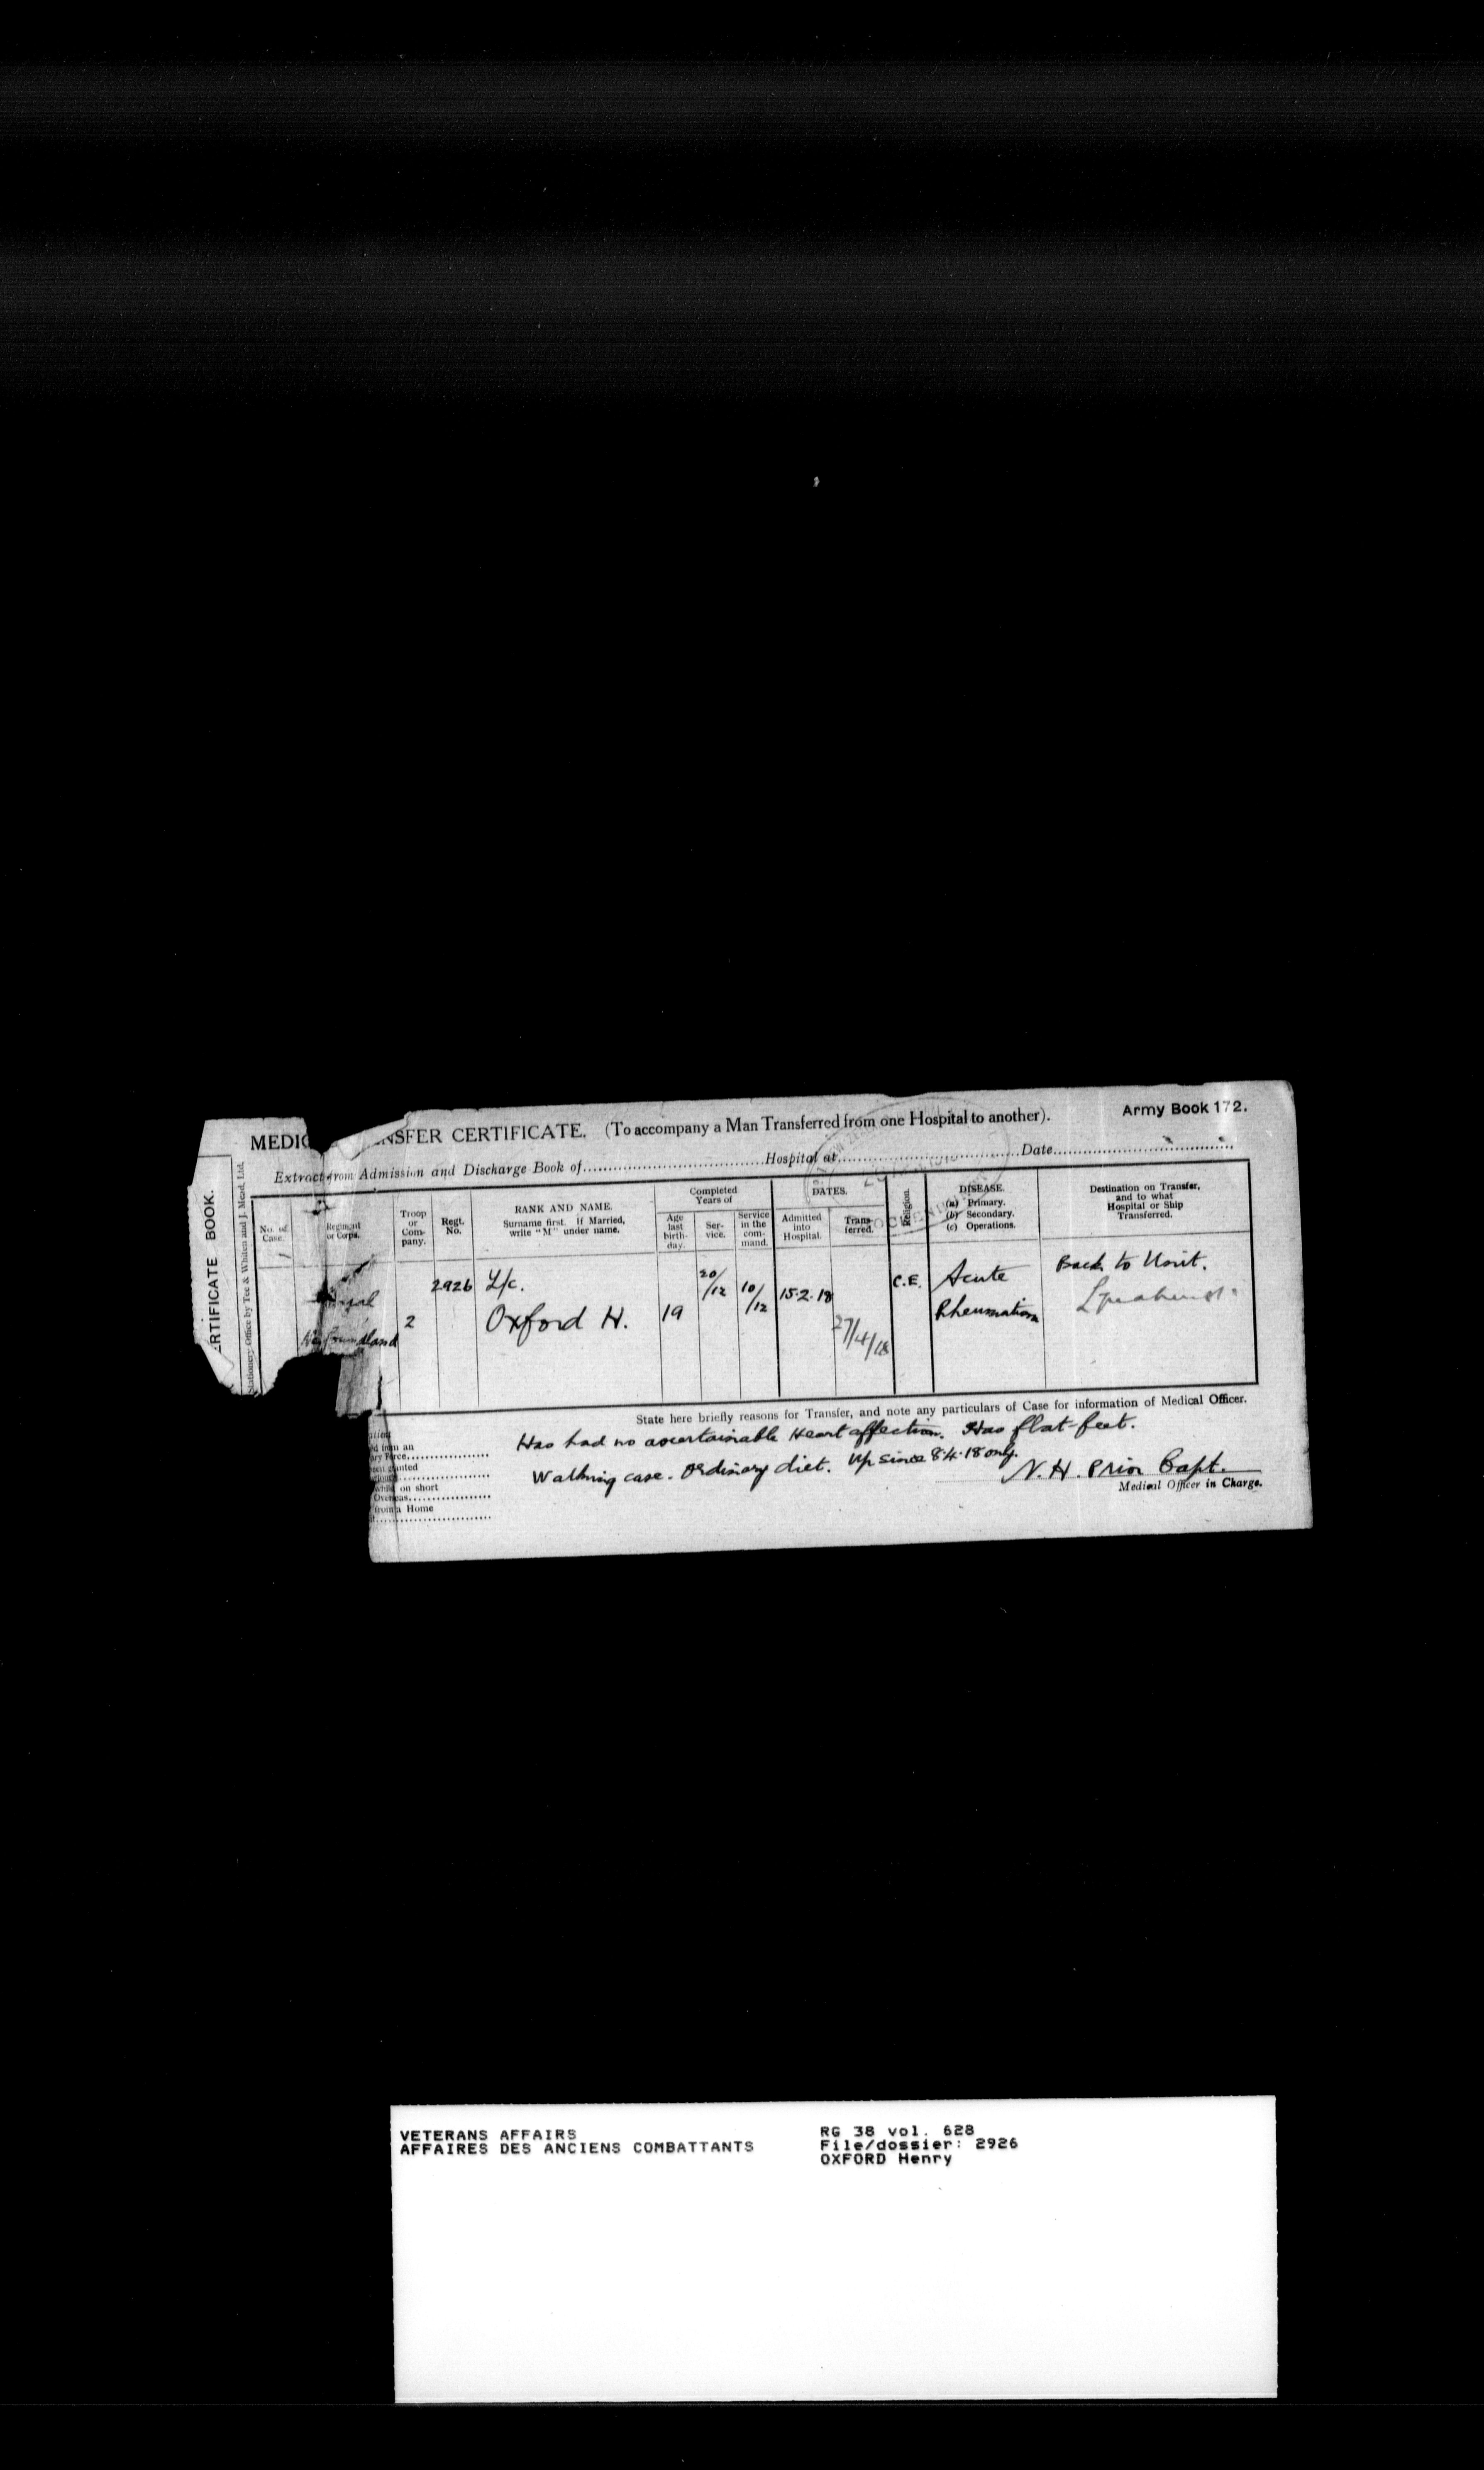 MEDIC NSFER CERTIFICATE. (To accompany a Man Transferred from one Hospital to another). Army Book 172.
Extract from Admission and Discharge Book of Hospital at Date
ERTIFICATE BOOK.
Stationery Office by Tee & Whiten and J. Mead, Ltd.
No. of Case.
Regiment or Corps.
Troop or Com- pany.
Regt. No.
RANK AND NAME.
Surname first. If Married, write "M" under name.
Completed Years of
Age last birth- day.
Ser- vice.
Service in the com- mand.
DATES.
Admitted into Hospital.
Trans- ferred.
Religion.
DISEASE.
(a) Primary.
(b) Secondary.
(c) Operations.
Destination on Transfer, and to what Hospital or Ship Transferred.
2926 L/c. 20/12 10/12 15.2.18 C.E. Acute Back to Unit.
Newfoundland 2 Oxford H. 19 27/4/18 Rheumatism
State here briefly reasons for Transfer, and note any particulars of Case for information of Medical Officer.
Has had no ascertainable Heart affection. Has flat-feet.
Walking case. Ordinary diet. Up since 8.4.18 only.
N. H. Prior Capt.
Medical Officer in Charge.
from an
ary Force
een granted
while on short
Overseas
from a Home
VETERANS AFFAIRS RG 38 vol. 628
AFFAIRES DES ANCIENS COMBATTANTS File/dossier: 2926
OXFORD Henry